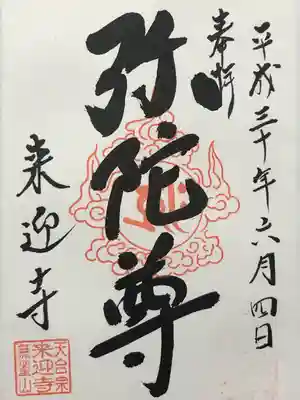 平成三十年六月四日
奉拝
弥陀尊
来迎寺
天台宗
来迎寺